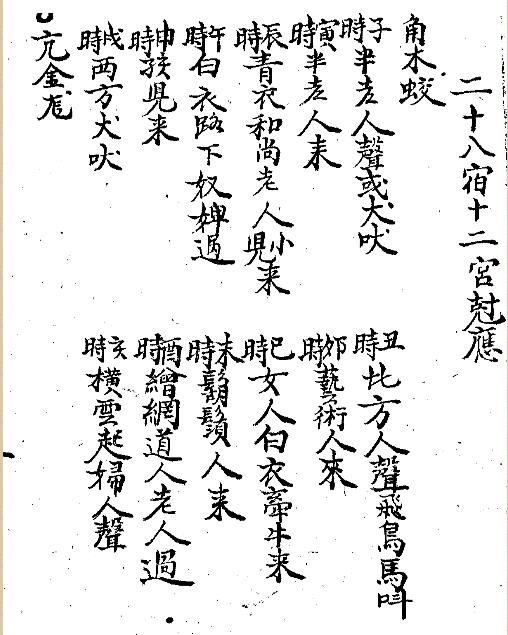 二十八宿十二宮尅應
角木蛟
子時半老人聲或犬吠
丑時北方人聲飛鳥馬叫
寅時半老人来
卯時藝術人來
辰時青衣和尚老人小兒来
巳時女人白衣牽牛来
午時白衣路下奴婢過
未時鬍鬚人来
申時孩兒来
酉時繒網道人老人過
戌時西方犬吠
亥時橫雲起婦人聲
亢金龙